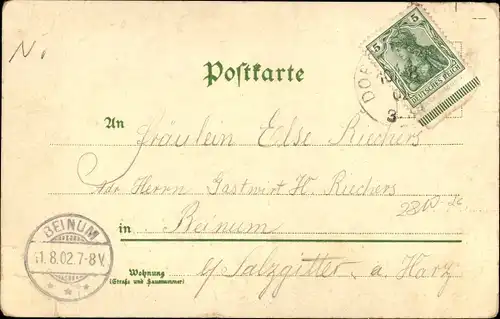 N.
Postkarte
5 5
DEUTSCHES REICH
DOR
3
An Fräulein Else Riechers
Adr. Herrn Gastwirt H. Riechers
in Beinum
BEINUM
11.8.02.7-8V.
Wohnung
(Straße und Hausnummer)
b/ Salzgitter a Harz